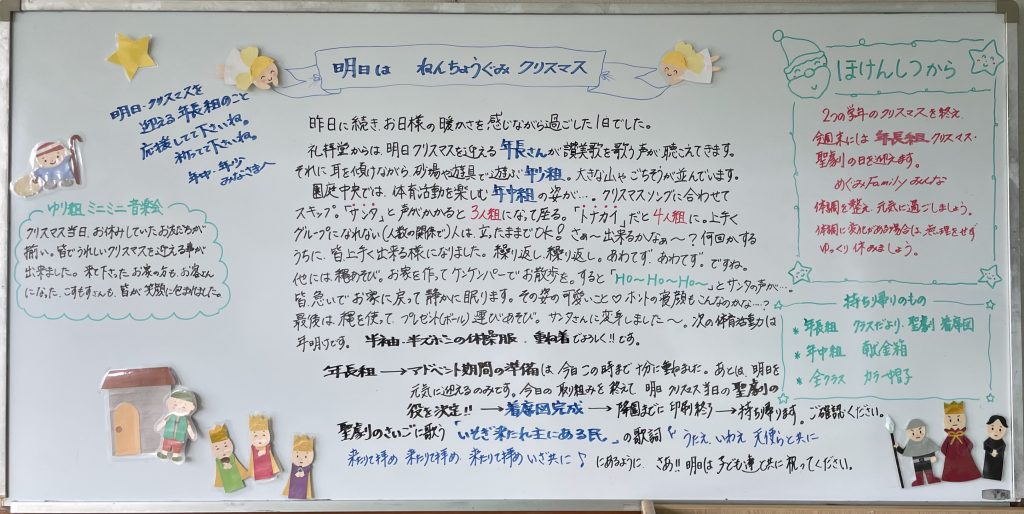 明日は ねんちょうぐみ クリスマス
明日・クリスマスを
迎える年長組のこと
応援してて下さいね。
祈ってて下さいね。
年中・年少
みなさまへ
ゆり組 ミニミニ音楽会
クリスマス当日、お休みしていたお友だちが
揃い。皆でうれしいクリスマスを迎える事が
出来ました。来て下さったお家の方も、お客さん
になった、こすもすさんも、皆が笑顔に包まれました。
昨日に続き、お日様の暖かさを感じながら過ごした1日でした。
礼拝堂からは、明日クリスマスを迎える 年長さんが讃美歌を歌う声が聴こえてきます。
それに耳を傾けながら、砂場や遊具で遊ぶ年少組。大きな山やごちそうが並んでいます。
園庭中央では、体育活動を楽しむ年中組の姿が…。クリスマスソングに合わせて
スキップ。「サンタ」と声がかかると3人組になって座る。「トナカイ」だと4人組に。上手く
グループになれない(人数の関係で)人は、立ったままでOK! さぁ〜出来るかなぁ〜?何回かする
うちに、皆上手く出来る様になりました。繰り返し、繰り返し。あわてず、あわてず。ですね。
他には縄あそび。お家を作ってケンケンパーでお散歩を。すると「HO〜HO〜HO〜」とサンタの声が…
皆、急いでお家に戻って静かに眠ります。その姿の可愛いこと♡ホントの寝顔もこんなのかな…?
最後は、縄を使って、プレゼント(ボール)運びあそび。サンタさんに変身しました〜。次の体育活動は
年明けです。 半袖・半ズボンの体操服、重ね着でよろしく!!です。
年長組 → アドベント期間の準備は、今日この時まで十分に重ねました。あとは、明日を
元気に迎えるのみです。今日の取り組みを終えて、明日クリスマス当日の聖劇の
役を決定!! → 着席図完成 → 降園までに印刷終了 → 持ち帰ります。ご確認ください。
聖劇のさいごに歌う「いそぎ来たれ主にある民」の歌詞♪うたえ、いわえ 天使らと共に
来たりて拝め 来たりて拝め 来たりて拝め いざ共に♪ にあるように さあ!!明日は子ども達と共に祝ってください。
ほけんしつから
2つの学年のクリスマスを終え、
今週末には年長組クリスマス・
聖劇の日を迎えます。
めぐみFamilyみんな
体調を整え、元気に過ごしましょう。
体調に変化がある場合は、無理をせず
ゆっくり休みましょう。
持ち帰りのもの
* 年長組 クラスだより・聖劇着席図
* 年中組 献金箱
* 全クラス カラー帽子